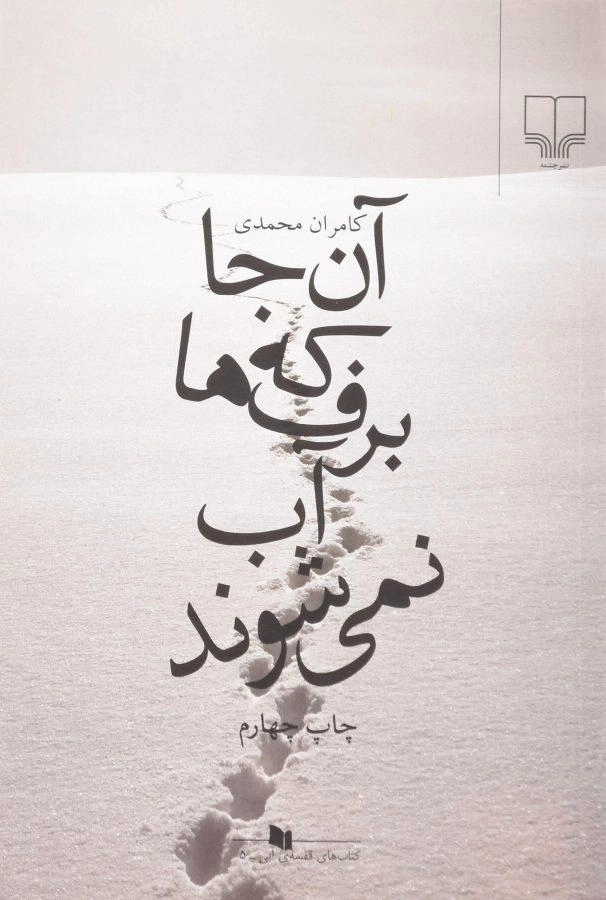 نشر چشمه
کامران محمدی
آن جا
که
برف‌ها
آب
نمی‌شوند
چاپ چهارم
کتاب‌های قفسه‌ی آبی - ۵